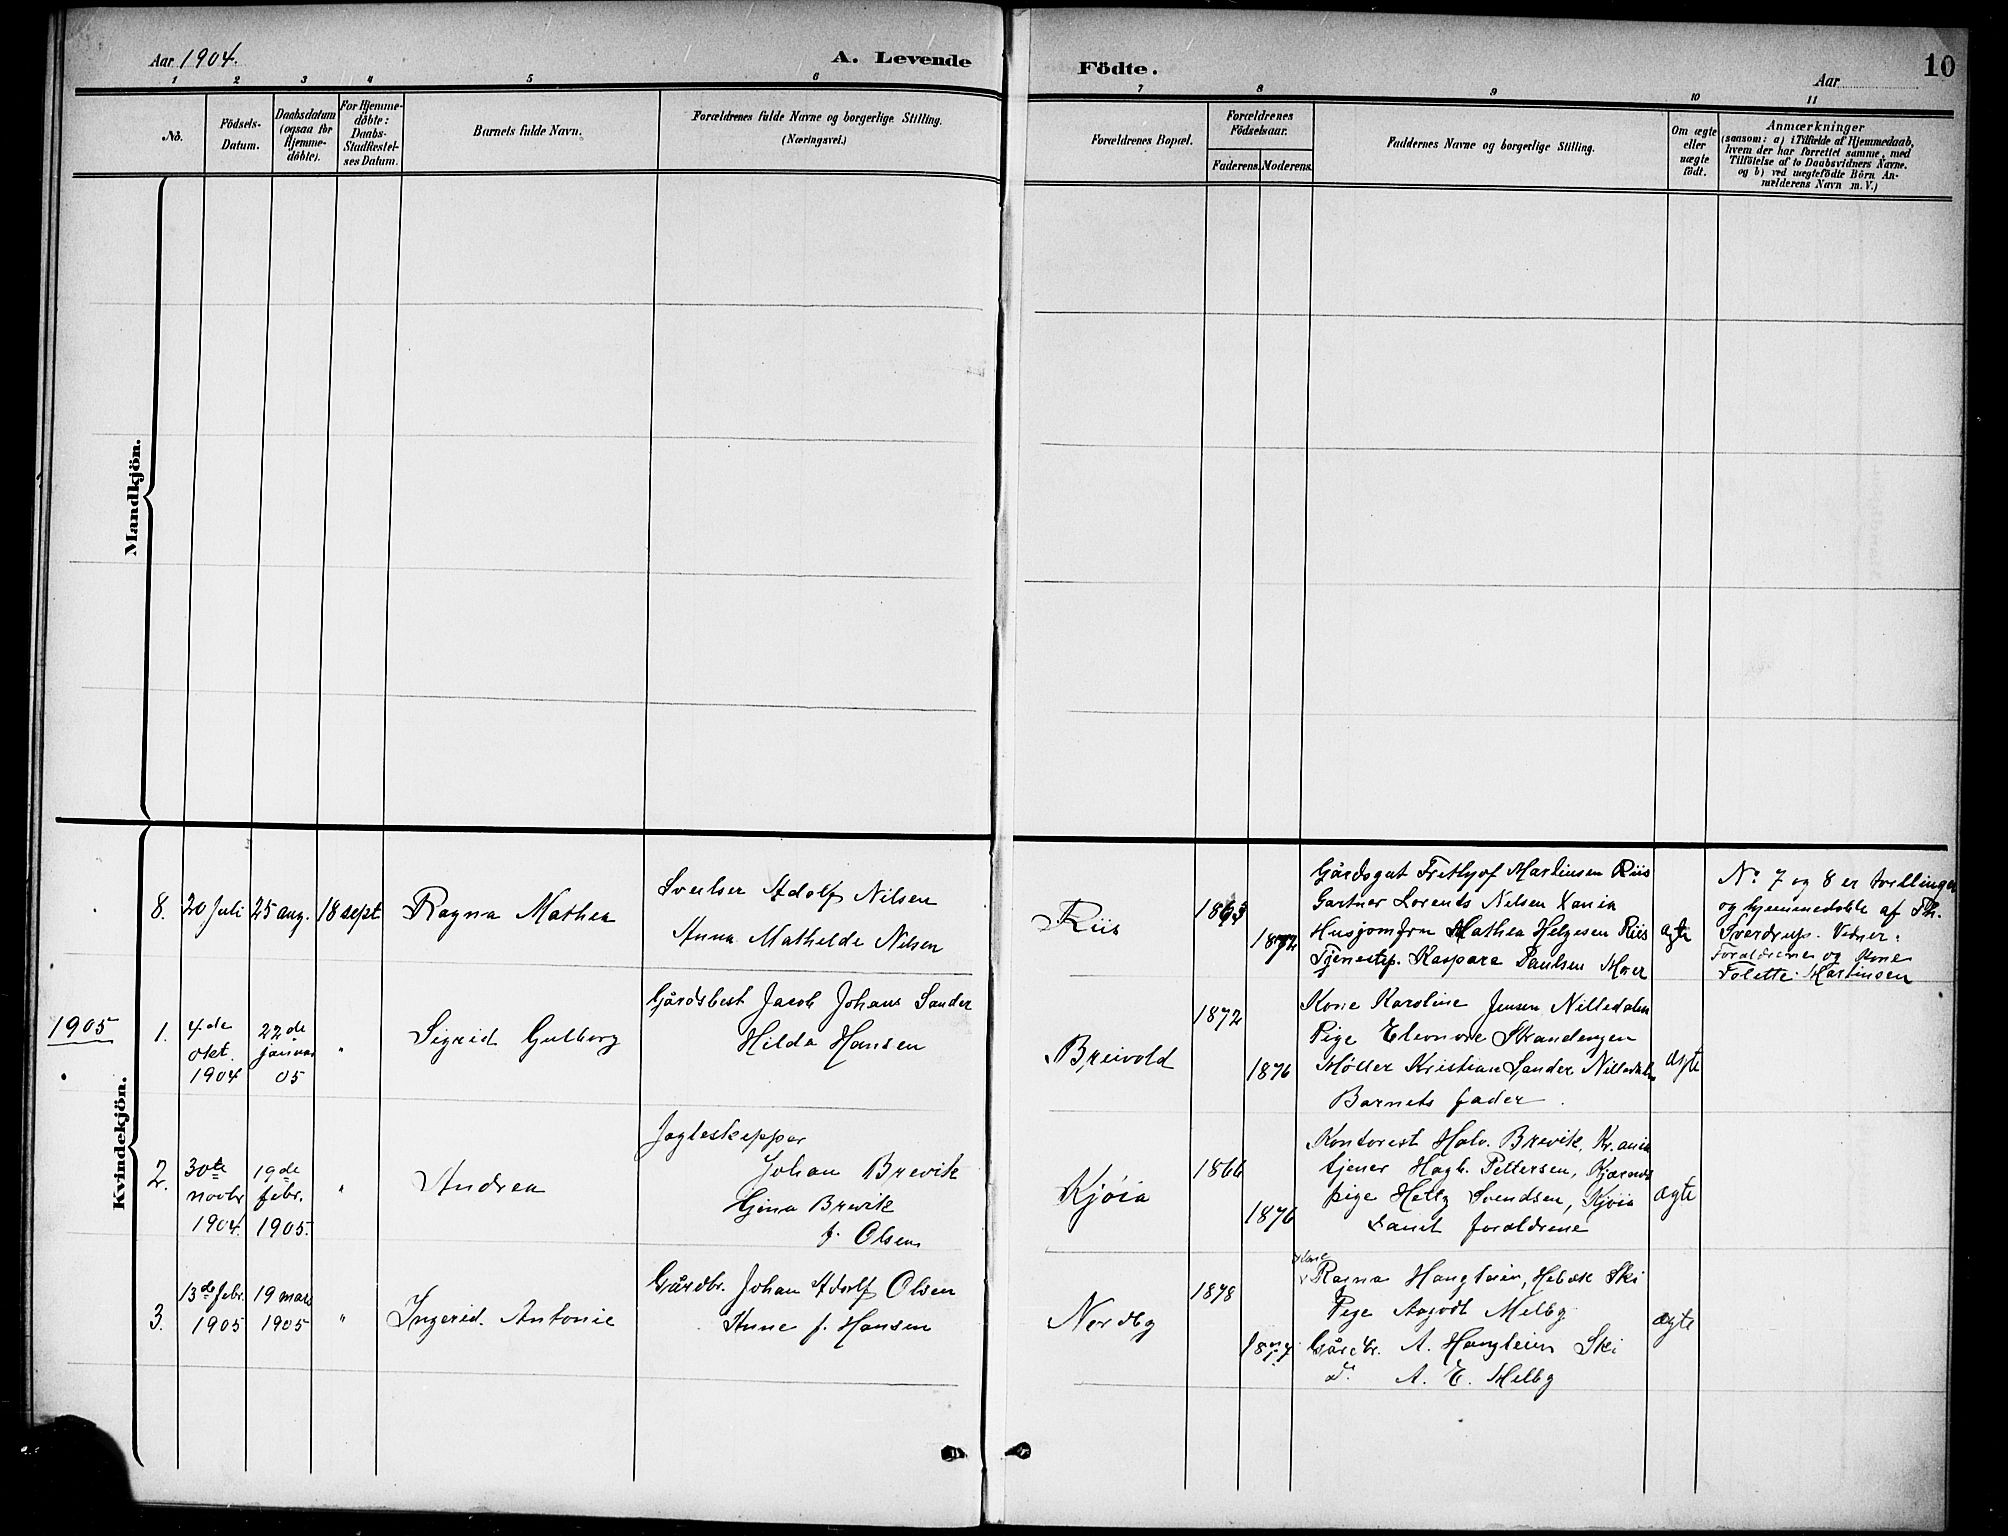 Aar 1904.
A. Levende
Födte.
Aar
10
1 2 3 4 5 6 7 8 9 10 11
No.
Födsels-
Datum.
Daabsdatum
(ogsaa for
Hjemme-
döbte).
For Hjemme-
döbte:
Daabs-
Stadfæstel-
ses Datum.
Barnets fulde Navn.
Forældrenes fulde Navne og borgerlige Stilling.
(Næringsvei.)
Forældrenes Bopæl.
Forældrenes
Födselsaar.
Faderens. Moderens.
Faddernes Navne og borgerlige Stilling.
Om ægte
eller
uægte
födt.
Anmærkninger
(saasom: a) i Tilfælde af Hjemmedaab,
hvem der har forrettet samme, med
Tilföielse af to Daabsvidners Navne.
og b) ved uægtefödte Börn An-
mælderens Navn m. V.)
Mandkjön.
Kvindekjön.
8. 20 Juli 25 aug. 18 sept
Ragna Mathea
Adolf Nilsen
Anna Mathilde Nilsen
Riis
1863
1872
Gårdsgut Frithjof Martinsen Riis
Gartner Lorents Nilsen Xania
Husjomfru Mathea Helgesen Riis
Tjenestep. Kaspara Paulsen Moer
ægte
No 7 og 8 er tvillinger
og hjemmedøbte af Th.
Sverdrup. Vidner:
Forældrene og Kone
Tolette Martinsen
1905
1.
4de
okt.
1904
22de
januar
05
"
Sigrid Gulborg
Gårdsbest Jacob Johans Sander
Hilda Hansen
Breivold
1872
1876
Kone Karoline Jensen Nilledalen
Pige Eleonore Strandengen
Møller Kristian Sander Nilledalen
Barnets fader.
ægte
2.
30te
novbr
1904
19de
febr.
1905.
"
Andrea
Jagteskipper
Johan Brevik
Gjina Brevik
f. Olsen
Kjøia
1866
1876
Kontorist Halv. Brevik, Kr.ania
tjener Hagb. Pettersen, Kjærnes
pige Svendsen, Kjøia
samt forældrene
ægte
3.
13de febr.
1905
19 mars
1905
"
Ingerid. Antonie
Gårdbr. Johan Adolf Olsen
Anne f. Hansen
Nordby
1878
1877
Kone
Ragna Haugteien, Hebæk Ski
Pige Aagodt Melby
Gårdbr. A. Haugteien Ski
do. A. E. Melby
ægte